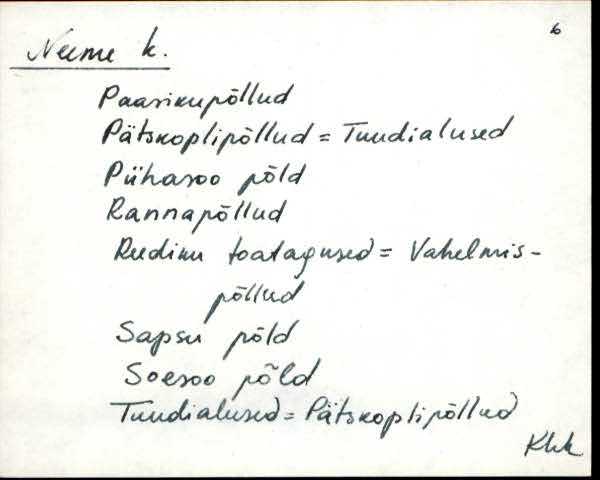 6
Neeme k.
Paasikupõllud
Pätskoplipõllud = Tuudialused
Pühasoo põld
Rannapõllud
Reediku toatagused = Vahelmis-
põllud
Sapsu põld
Soesoo põld
Tuudialused = Pätskoplipõllud
Khk